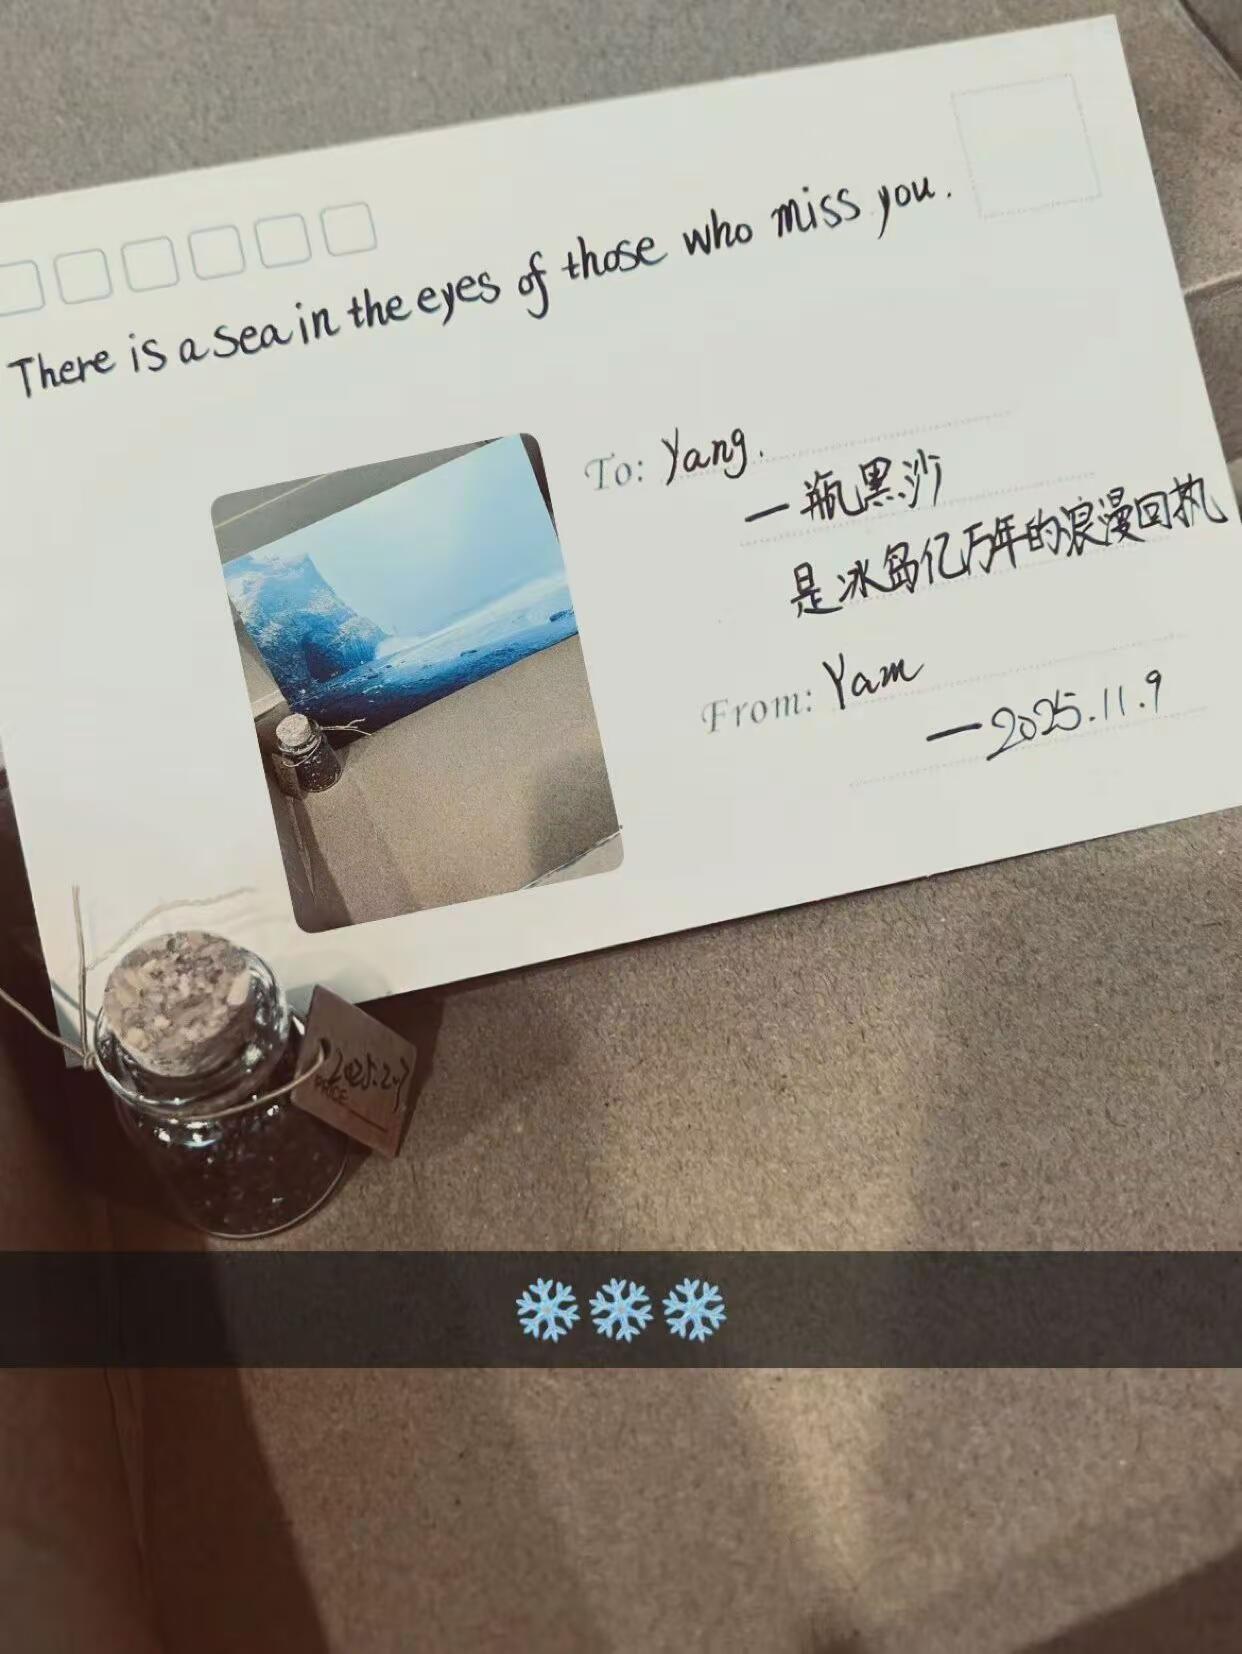 There is a sea in the eyes of those who miss you.
To: Yang.
一瓶黑沙
是冰岛亿万年的浪漫回执
From: Yam
—2025.11.9
2025.2.7
PRICE